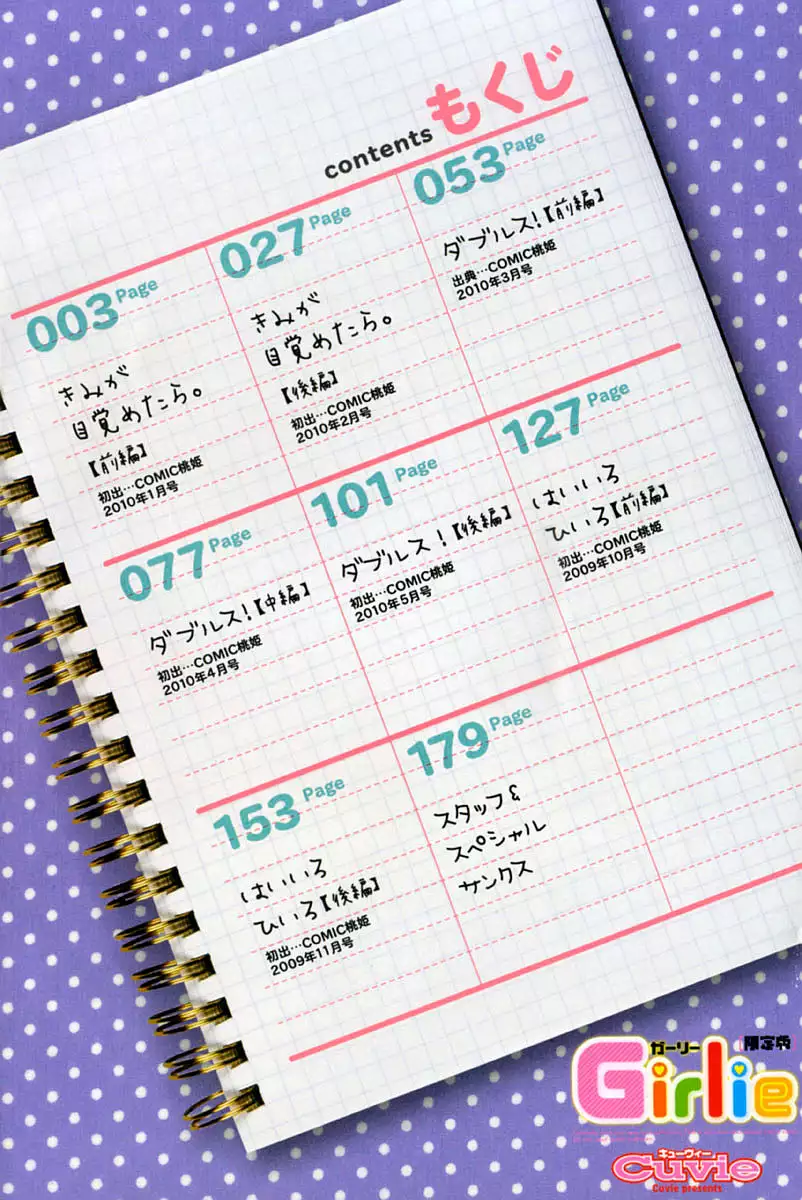 もくじ
contents
003 Page
きみが
目覚めたら。
【前編】
初出…COMIC桃姫
2010年1月号
027 Page
きみが
目覚めたら。
【後編】
初出…COMIC桃姫
2010年2月号
053 Page
ダブルス!【前編】
出典…COMIC桃姫
2010年3月号
077 Page
ダブルス!【中編】
初出…COMIC桃姫
2010年4月号
101 Page
ダブルス!【後編】
初出…COMIC桃姫
2010年5月号
127 Page
はいいろ
ひいろ【前編】
初出…COMIC桃姫
2009年10月号
153 Page
はいいろ
ひいろ【後編】
初出…COMIC桃姫
2009年11月号
179 Page
スタッフ&
スペシャル
サンクス
ガーリー 限定版
Girlie
キューヴィー
Cuvie
Cuvie presents